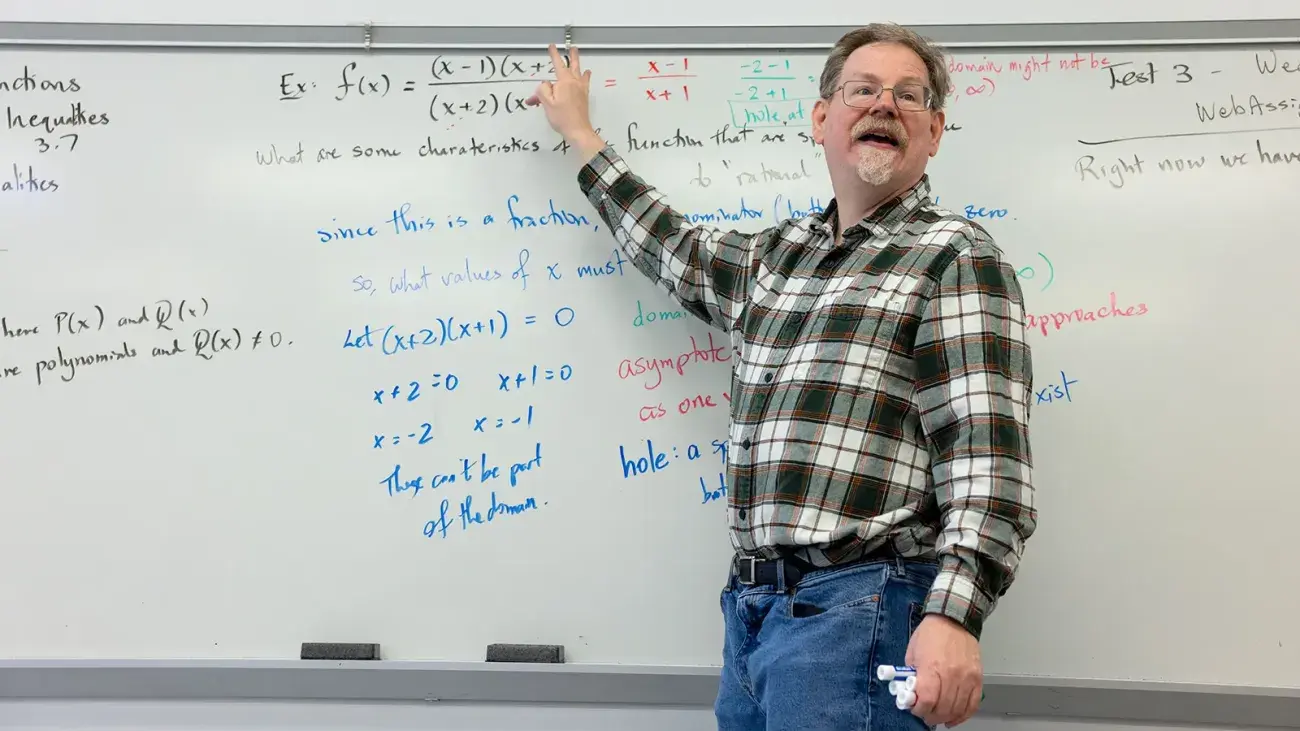 nctions
Inequalities
3.7
alities
here P(x) and Q(x)
re polynomials and Q(x) ≠ 0.
Ex: f(x) = (x-1)(x+2) / (x+2)(x = x-1 / x+1
-2-1 / -2+1 =
hole at
domain might not be
, ∞)
What are some charateristics of function that are
to "rational"
since this is a fraction, nominator zero.
so, what values of x must
Let (x+2)(x+1) = 0
x+2=0 x+1=0
x=-2 x=-1
These can't be part
of the domain.
domai ∞)
asymptote approaches
as one xist
hole: a sp
but
Test 3 - We
WebAssig
Right now we hav